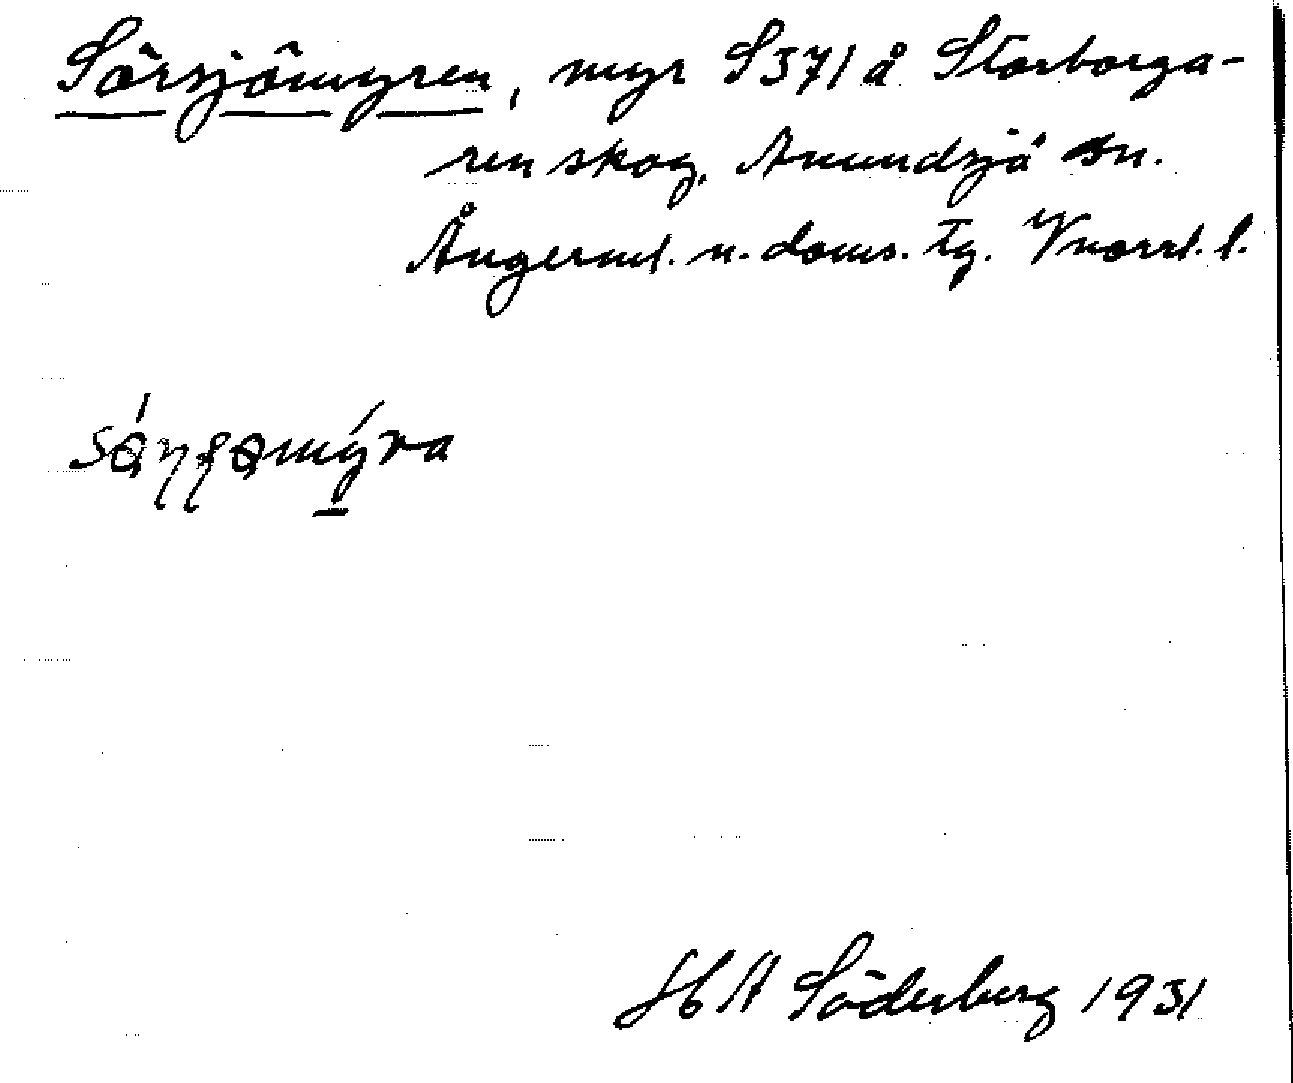 Sörsjömyren, myr S 371 å Storborga-
ren skog, Anundsjö sn.
Ångerml. n. doms. tg. Vnorrl. l.
H A Söderberg 1931